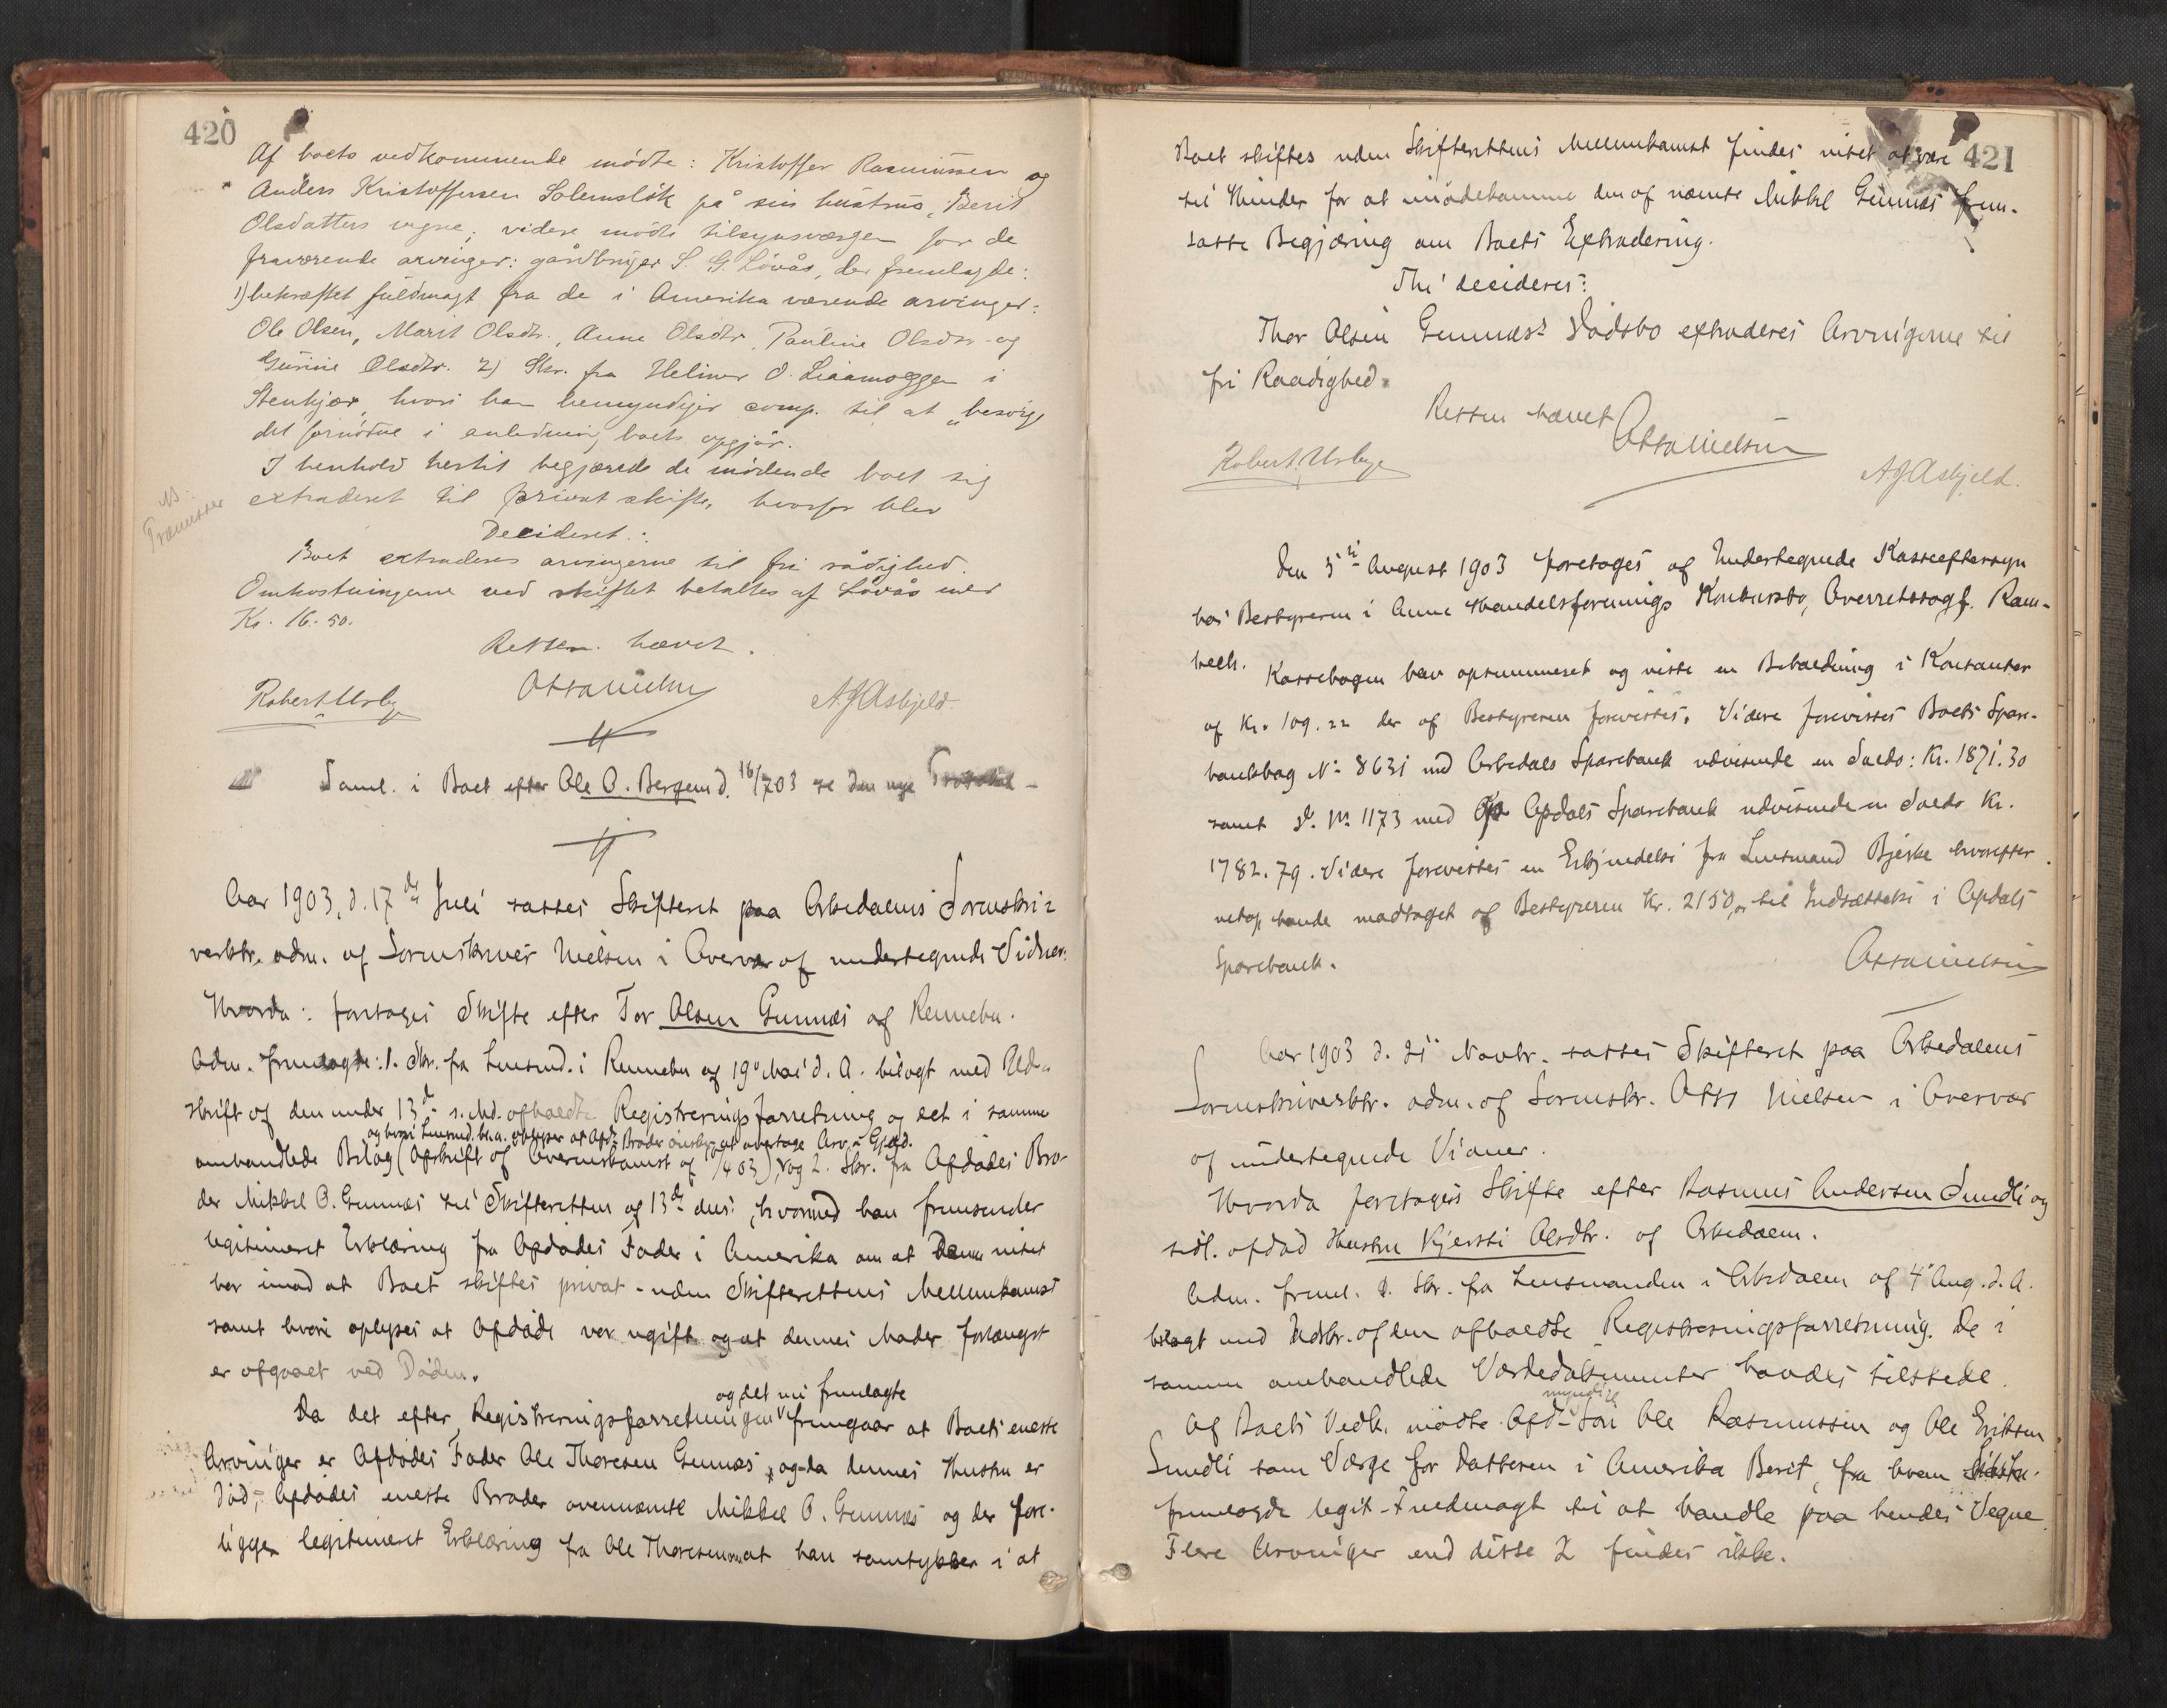 420
Af boets vedkommende mödte: Kristoffer Rasmussen og
Anders Kristoffersen Solemslök på sin hustrus, Berit
Olsdatters vegne; videre mödte tilsynsværgen for de
fraværende arvinger: gårdbruger S. G. Lövås, der fremlagde:
1) bekræftet fuldmagt fra de i Amerika værende arvinger:
Ole Olsen, Marit Olsdtr., Anne Olsdtr, Pauline Olsdtr og
Gurine Olsdtr. 2) Skr. fra Helmer O. Liaamoggen i
Stenkjær, hvori han bemyndiger comp. til at "besörge
det fornödne i anledning boets opgjör.
I henhold hertil begjærede de mödende boet sig
extraderet til privat skifte, hvorfor blev
Decideret:
Boet extraderes arvingerne til fri rådighed.
Omkostningerne ved skiftet betaltes af Lövås med
Kr. 16.50.
Retten hævet.
Robert Usbye Otto Nielsen A. J. Asbjeld.
Saml. i Boet efter Ole O. Bergem d. 16/7 03 se den nye Protokol -
Aar 1903, d. 17de Juli sattes Skifteret paa Orkedalens Sorenskri-
verktr. adm. af Sorenskriver Nielsen i Overvær af undertegnede Vidner.
Hvorda: foretoges Skifte efter Tor Olsen Gunnæs af Rennebu.
Adm. fremlagde: 1. Skr. fra Lensmd. i Rennebu af 19 Mai d. A. bilagt med Ud-
skrift af den under 13de s. Md. afholdte Registreringsforretning og det i samme
og hvori Lensmd. bl. a. oplyser at Afd.s Broder önsker at overtage Arv & Gjæld.
omhandlede Bilag (Afskrift af Overenskomst af /4 03), og 2. Skr. fra Afdödes Bro-
der Mikkel O. Gunnæs til Skifteretten af 13de ds., hvormed han fremsender
legitimeret Erklæring fra Afdödes Fader i Amerika om at Denne intet
har imod at Boet skiftes privat - uden Skifterettens Mellemkomst
samt hvori oplyses at Afdöde var ugift og at dennes Moder forlængst
er afgaaet ved Döden.
og det nu fremlagte
Da det efter Registreringsforretningen fremgaar at Boets eneste
Arvinger er Afdödes Fader Ole Thoresen Gunnæs, og da dennes Hustru er
död, Afdödes eneste Broder ovennævnte Mikkel O. Gunnæs og der fore-
ligger legitimeret Erklæring fra Ole Thoresen om at han samtykker i at
421
Boet skiftes uden Skifterettens Mellemkomst findes intet at være
til Hinder for at imödekomme den af nævnte Mikkel Gunnæs frem-
satte Begjæring om Boets Extradering.
Thi decideres:
Thor Olsen Gunnæs's Dödsbo extraderes Arvingerne til
fri Raadighed.
Retten hævet
Otto Nielsen
Robert Usbye A. J. Asbjeld.
Den 5te August 1903 foretoges af Undertegnede Kasseeftersyn
hos Bestyreren i Anne Handelsforenings Konkursbo, Overretssagf. Ram-
bech. Kassebogen blev opsummeret og viste en Beholdning i Kontanter
af Kr. 109.22 der af Bestyreren forevistes. Videre forevistes Boets Spare-
bankbog No 8631 med Orkedals Sparebank udvisende en Saldo: Kr. 1871.30
samt d. No 1173 med Opdals Sparebank udvisende en Saldo Kr.
1782.79. Videre forevistes en Erkjendelse fra Lensmand Bjerke hvorefter
netop havde modtaget af Bestyreren Kr. 2150,00 til Indsættelse i Opdals
Sparebank.
Otto Nielsen
Aar 1903 d. 21 Novbr. sattes Skifteret paa Orkedalens
Sorenskriverktr. adm. af Sorenskr. Otto Nielsen i Overvær
af undertegnede Vidner.
Hvorda foretoges Skifte efter Rasmus Andersen Smedli og
tidl. afdöd Hustru Kjersti Olsdtr. af Orkedalen.
Adm. freml. 1. Skr. fra Lensmanden i Orkedalen af 4 Aug. d. A.
bilagt med Udskr. af den afholdte Registreringsforretning. De i
samme omhandlede Værdedokumenter havdes tilstede.
myndige
Af Boets Vedk. mödte Afd.s Sön Ole Rasmussen og Ole Eriksen
Smedli som Værge for Datteren i Amerika Berit, fra hvem
fremlagde legit. Fuldmagt til at handle paa hendes Vegne.
Flere Arvinger end disse 2 findes ikke.